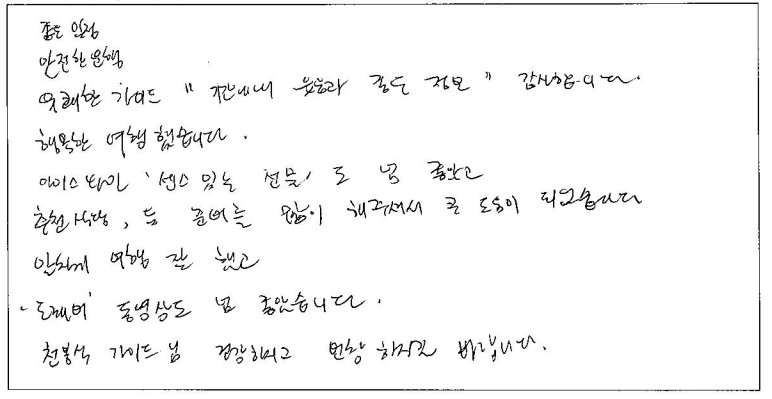 좋은 일정
안전한 운행
유쾌한 가이드 "지내내 웃음과 좋은 정보" 감사합니다.
행복한 여행 했습니다.
아이스 와인 '센스 있는 선물' 도 넘 좋았고
추천 식당, 등 준비를 많이 해주셔서 큰 도움이 되었습니다
알차게 여행 잘 했고
동영상도 넘 좋았습니다.
천봉석 가이드님 건강하시고 번창 하시길 바랍니다.